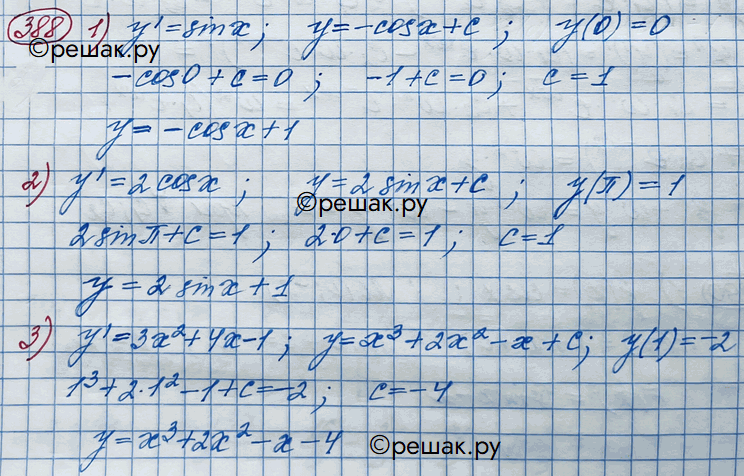 388 1) y' = sin x; y = -cos x + c; y(0) = 0
©решак.ру
-cos 0 + c = 0; -1 + c = 0; c = 1
y = -cos x + 1
2) y' = 2 cos x; y = 2 sin x + c; y(π) = 1
©решак.ру
2 sin π + c = 1; 2·0 + c = 1; c = 1
y = 2 sin x + 1
3) y' = 3x² + 4x - 1; y = x³ + 2x² - x + c; y(1) = -2
1³ + 2·1² - 1 + c = -2; c = -4
y = x³ + 2x² - x - 4 ©решак.ру